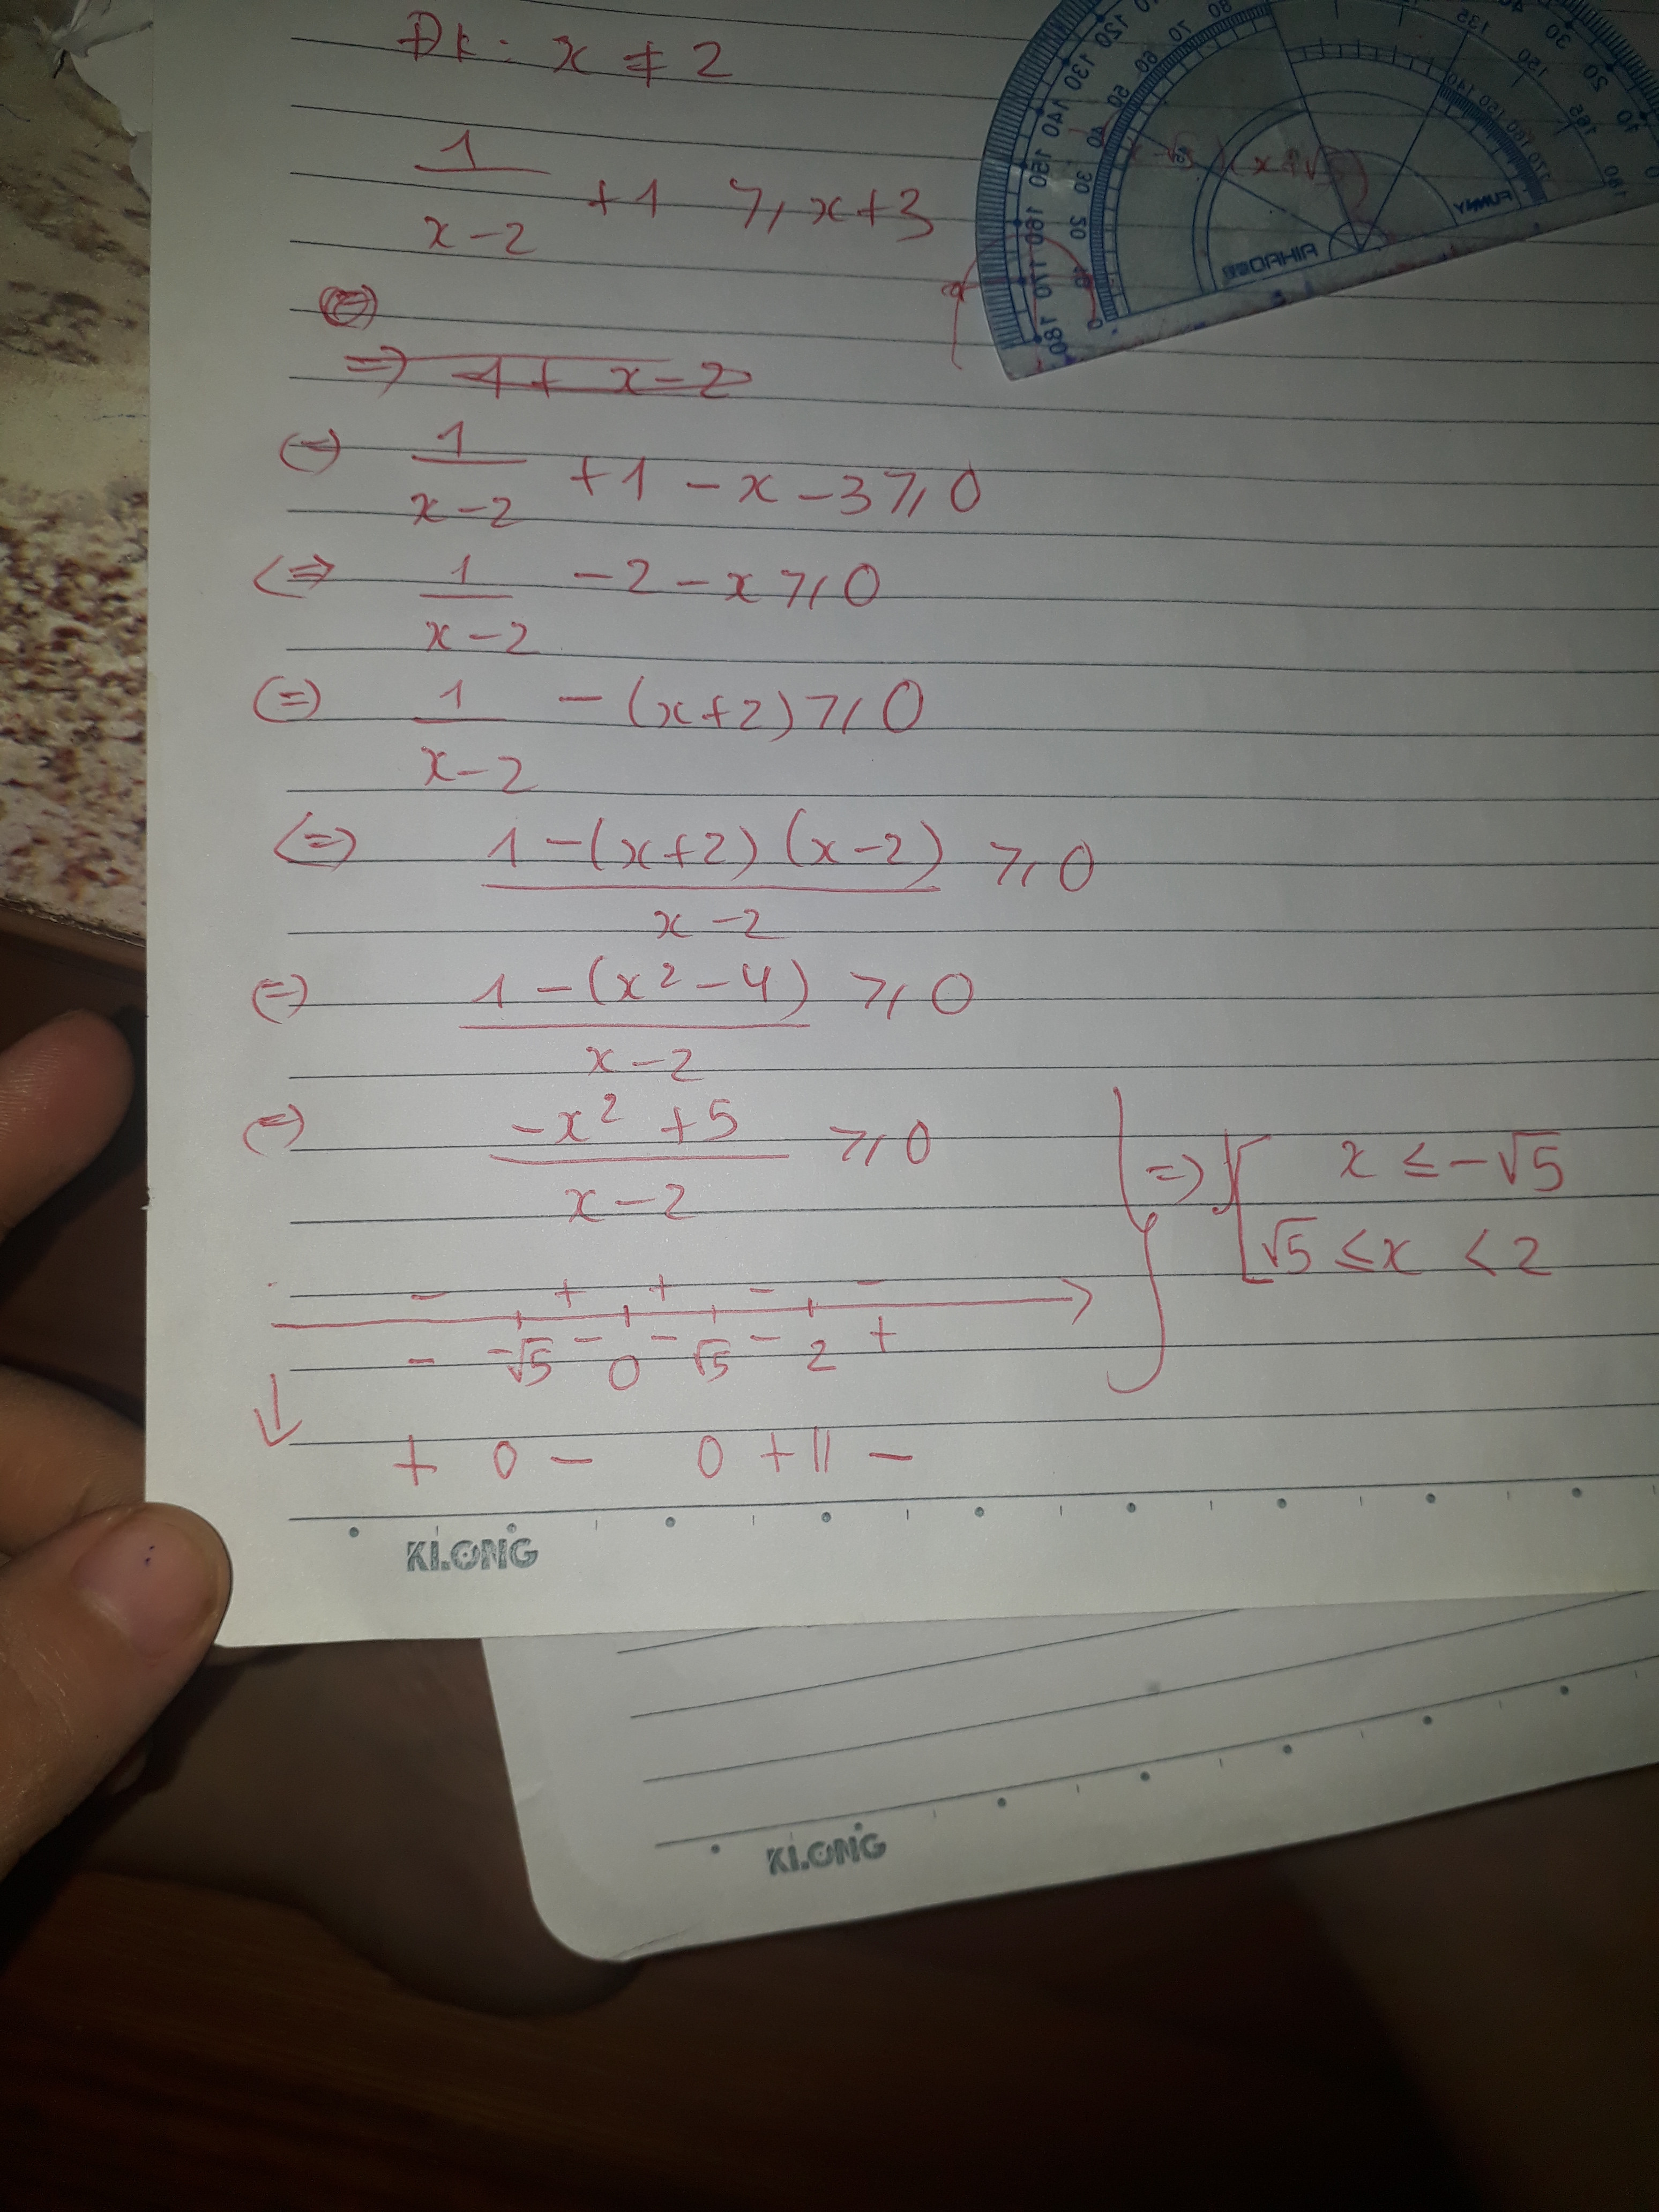 Đk: x ≠ 2
1/(x-2) +1 ≥ x+3
(=)
=) 1+ x-2
(=) 1/(x-2) +1 -x -3 ≥ 0
(=) 1/(x-2) -2 -x ≥ 0
(=) 1/(x-2) -(x+2) ≥ 0
(=) (1-(x+2)(x-2))/(x-2) ≥ 0
(=) (1-(x²-4))/(x-2) ≥ 0
(=) (-x²+5)/(x-2) ≥ 0
=) [ x ≤ -√5
√5 ≤ x < 2
- + + - -
- -√5 - 0 - √5 - 2 +
↓
+ 0 - 0 + || -
KLONG
KLONG